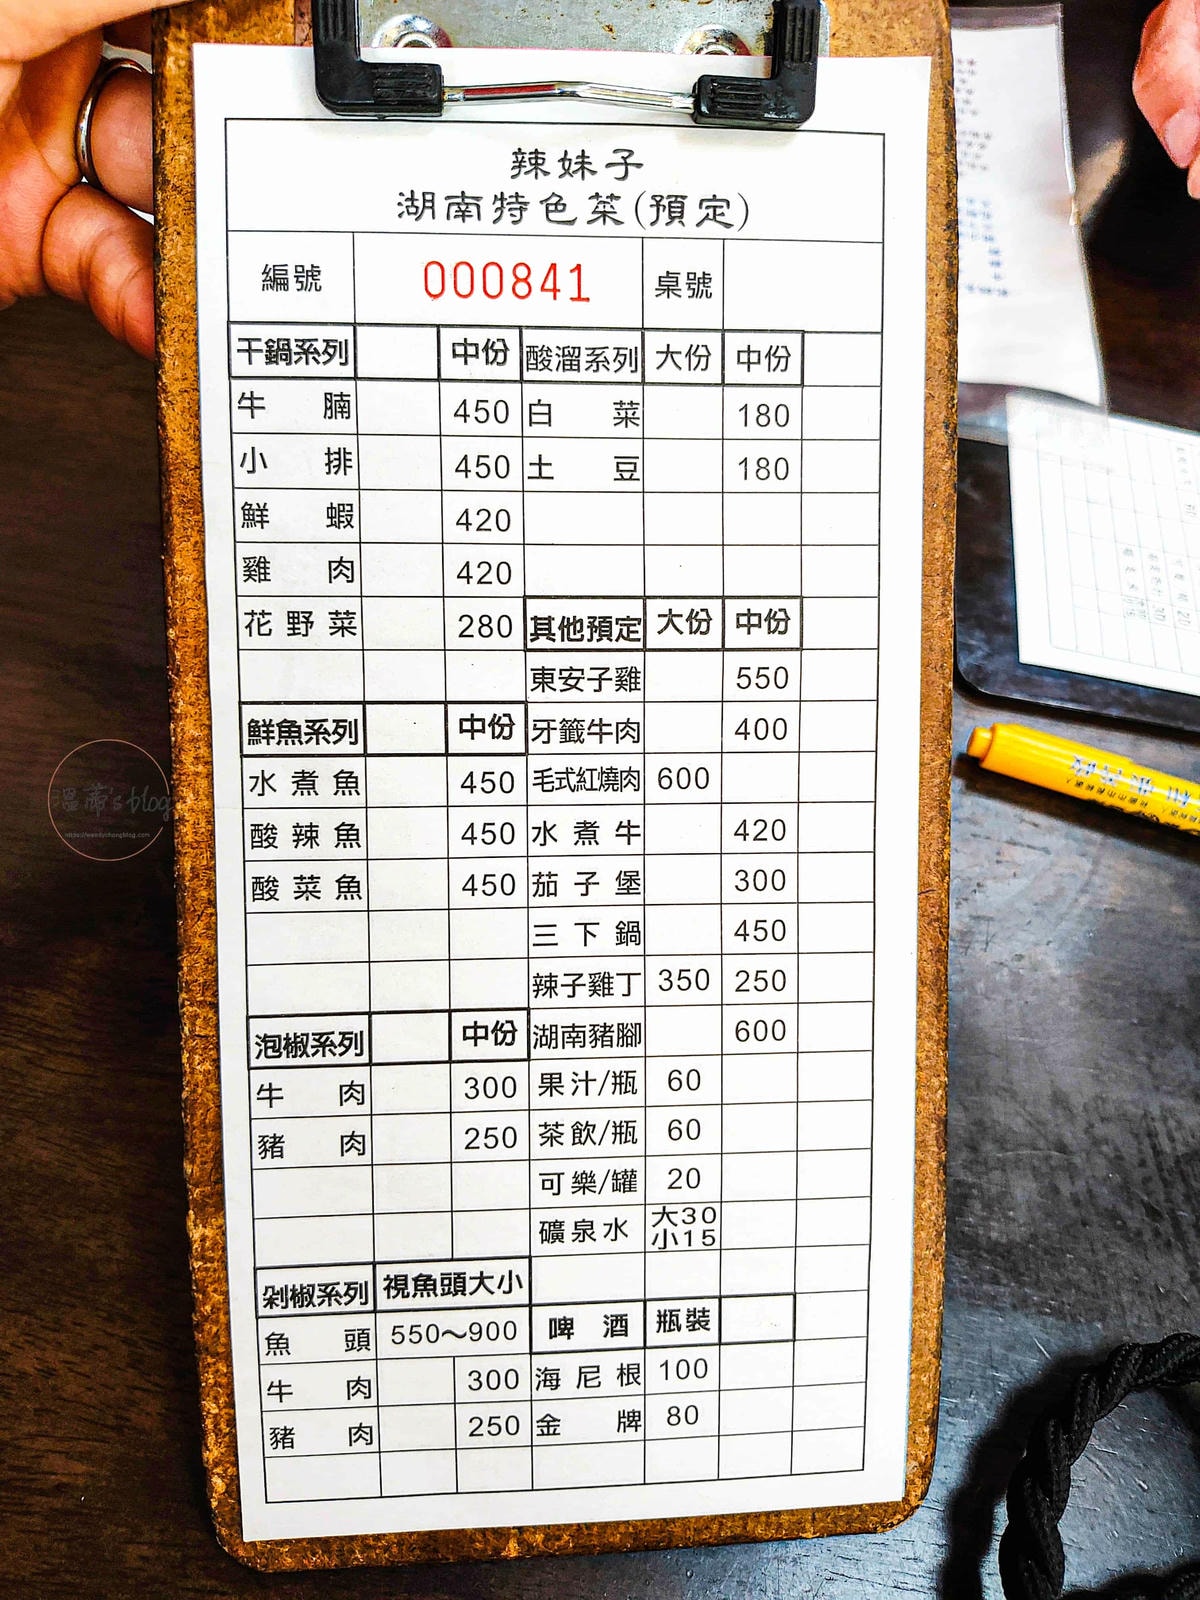 辣妹子
湖南特色菜(預定)
編號 000841 桌號
干鍋系列 中份 酸溜系列 大份 中份
牛腩 450 白菜 180
小排 450 土豆 180
鮮蝦 420
雞肉 420
花野菜 280 其他預定 大份 中份
東安子雞 550
鮮魚系列 中份 牙籤牛肉 400
水煮魚 450 毛式紅燒肉 600
酸辣魚 450 水煮牛 420
酸菜魚 450 茄子堡 300
三下鍋 450
辣子雞丁 350 250
泡椒系列 中份 湖南豬腳 600
牛肉 300 果汁/瓶 60
豬肉 250 茶飲/瓶 60
可樂/罐 20
礦泉水 大30 小15
剁椒系列 視魚頭大小
魚頭 550～900 啤酒 瓶裝
牛肉 300 海尼根 100
豬肉 250 金牌 80
溫蒂's blog
https://wendychangblog.com